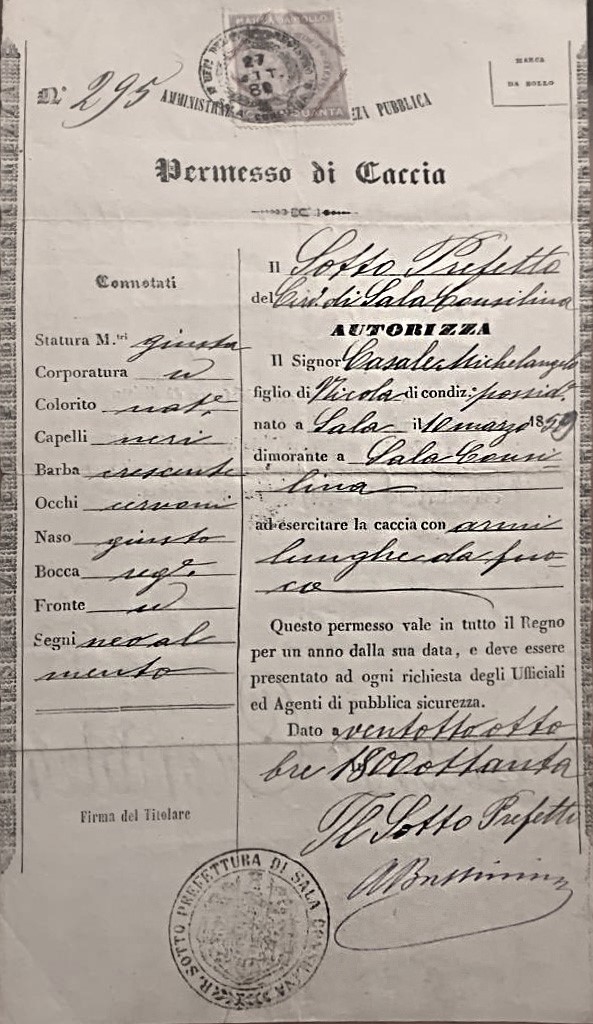 MARCA DA BOLLO
27
OTT.
80
MARCA
DA BOLLO
N° 295
PUBBLICA
Permesso di Caccia
Connotati
Statura M.tri giusta
Corporatura
Colorito nat.e
Capelli neri
Barba crescente
Occhi cervoni
Naso giusto
Bocca reg.e
Fronte
Segni neo al
mento
Firma del Titolare
Il Sotto Prefetto
del Circ.° di Sala Consilina
AUTORIZZA
Il Signor Casale Michelangelo
figlio di Nicola di condiz.e possid.e
nato a Sala il 10 marzo 1859
dimorante a Sala Consi
lina
ad esercitare la caccia con armi
lunghe da fuo-
co
Questo permesso vale in tutto il Regno
per un anno dalla sua data, e deve essere
presentato ad ogni richiesta degli Ufficiali
ed Agenti di pubblica sicurezza.
Dato a ventotto otto
bre 1800ottanta
Il Sotto Prefetto
R. SOTTO PREFETTURA DI SALA CONSILINA